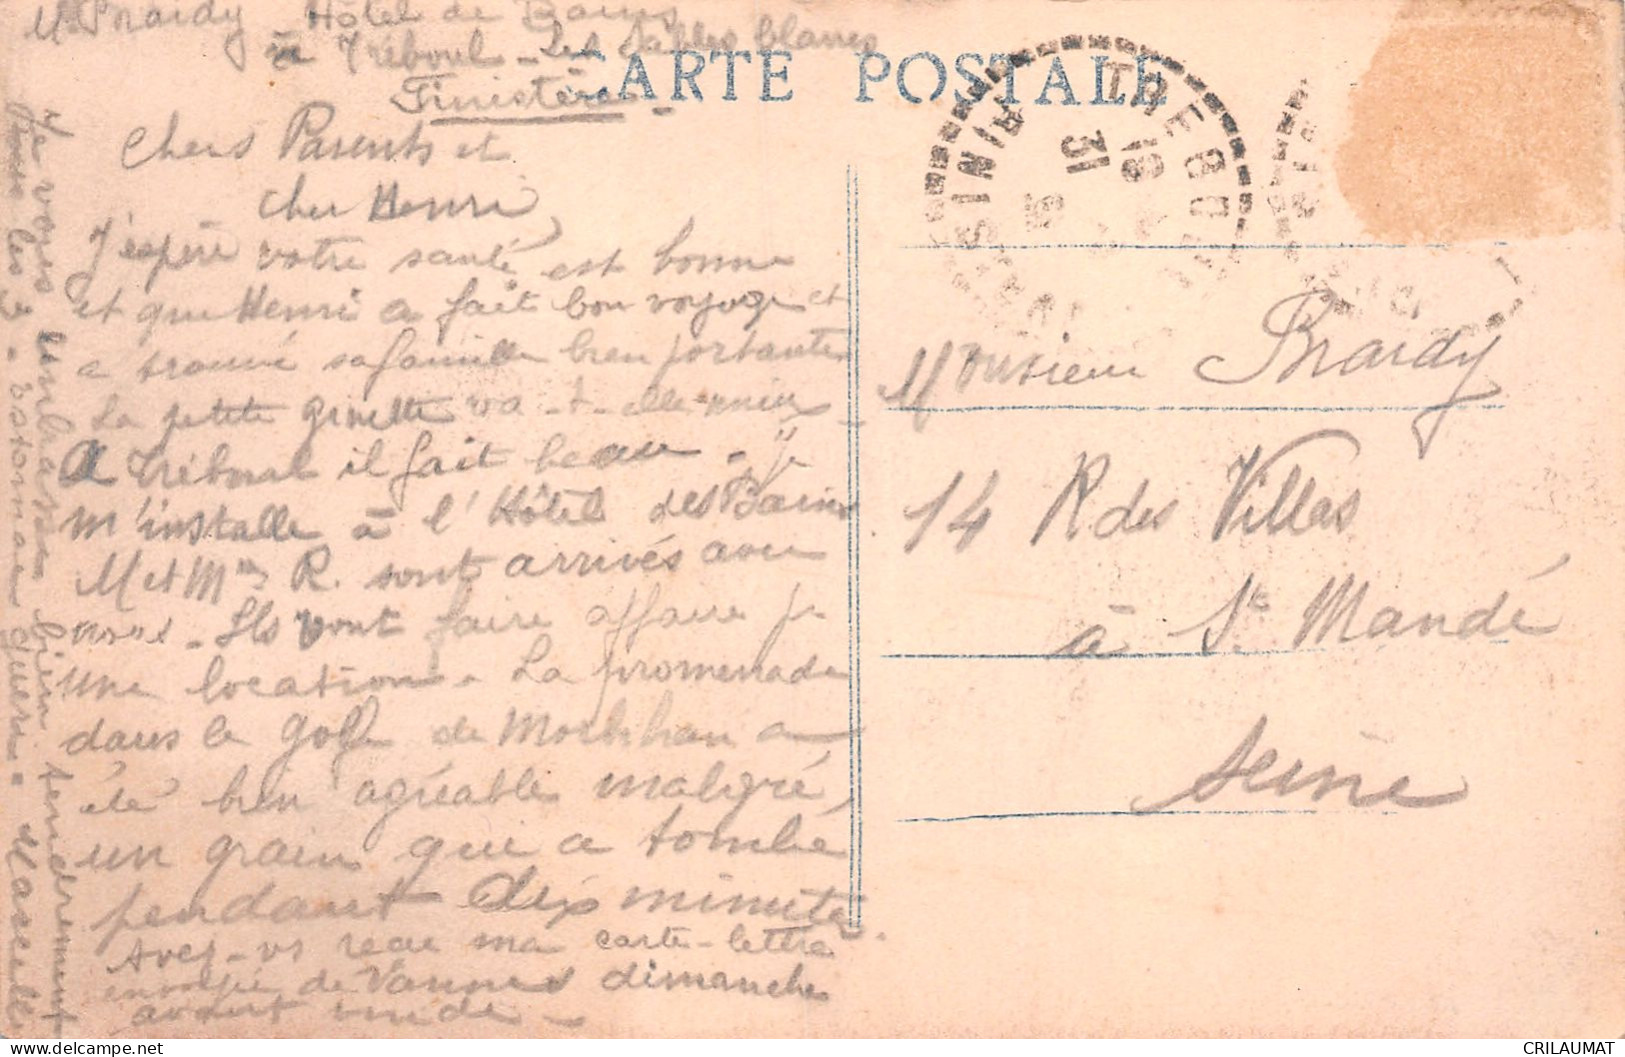 Mr Prardy Hôtel de Bains
à Tréboul - Les Sables blancs
Finistère -
CARTE POSTALE
Chers Parents et
cher Henri
J'espère votre santé est bonne
et que Henri a fait bon voyage et
a trouvé sa famille bien portante
La petite Ginette va-t-elle mieux -
A Tréboul il fait beau - Je
m'installe à l'Hôtel des Bains
M et Mme R. sont arrivés avec
nous - Ils vont faire affaire pr
une location. La promenade
dans le golfe de Morbihan a
été bien agréable malgré
un grain qui a tombé
pendant dix minutes.
Avez-vs reçu ma carte-lettre
envoyée de Vannes dimanche
avant midi -
Je vous embrasse bien tendrement
tous les 3 -
TREBOUL
FINISTERE
18
31
Monsieur Prardy
14 R des Villas
à St Mandé
Seine
CRILAUMAT